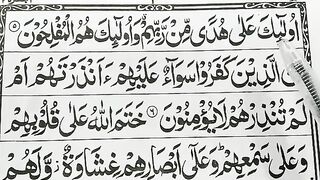 اُولٰٓئِكَ عَلٰى هُدًى مِّنْ رَّبِّهِمْ وَاُولٰٓئِكَ هُمُ الْمُفْلِحُوْنَ ۵
الَّذِيْنَ كَفَرُوْا سَوَآءٌ عَلَيْهِمْ ءَاَنْذَرْتَهُمْ اَمْ
لَمْ تُنْذِرْهُمْ لَا يُؤْمِنُوْنَ ۶ خَتَمَ اللّٰهُ عَلٰى قُلُوْبِهِمْ
وَعَلٰى سَمْعِهِمْ ؕ وَعَلٰٓى اَبْصَارِهِمْ غِشَاوَةٌ ؗ وَّلَهُمْ